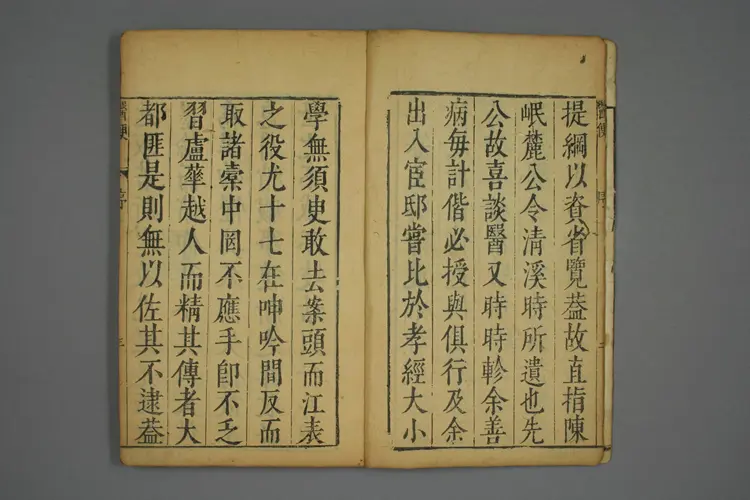 提綱以資省覽葢故直指陳
岷麓公令清溪時所遺也先
公故喜談醫又時時軫余善
病毎計偕必授與俱行及余
出入宦邸嘗比於孝經大小
學無須臾敢去案頭而江表
之役尤十七在呻吟間反而
取諸橐中罔不應手卽不乏
習盧華越人而精其傳者大
都匪是則無以佐其不逮葢
醫便
序